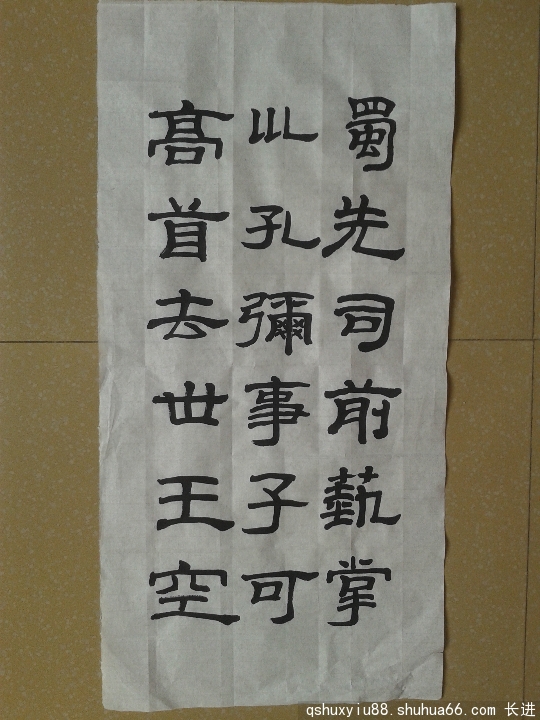 蜀先司前蓺掌
以孔彌事子可
高首去世王空
qshuxyiu88.shuhua66.com 长进